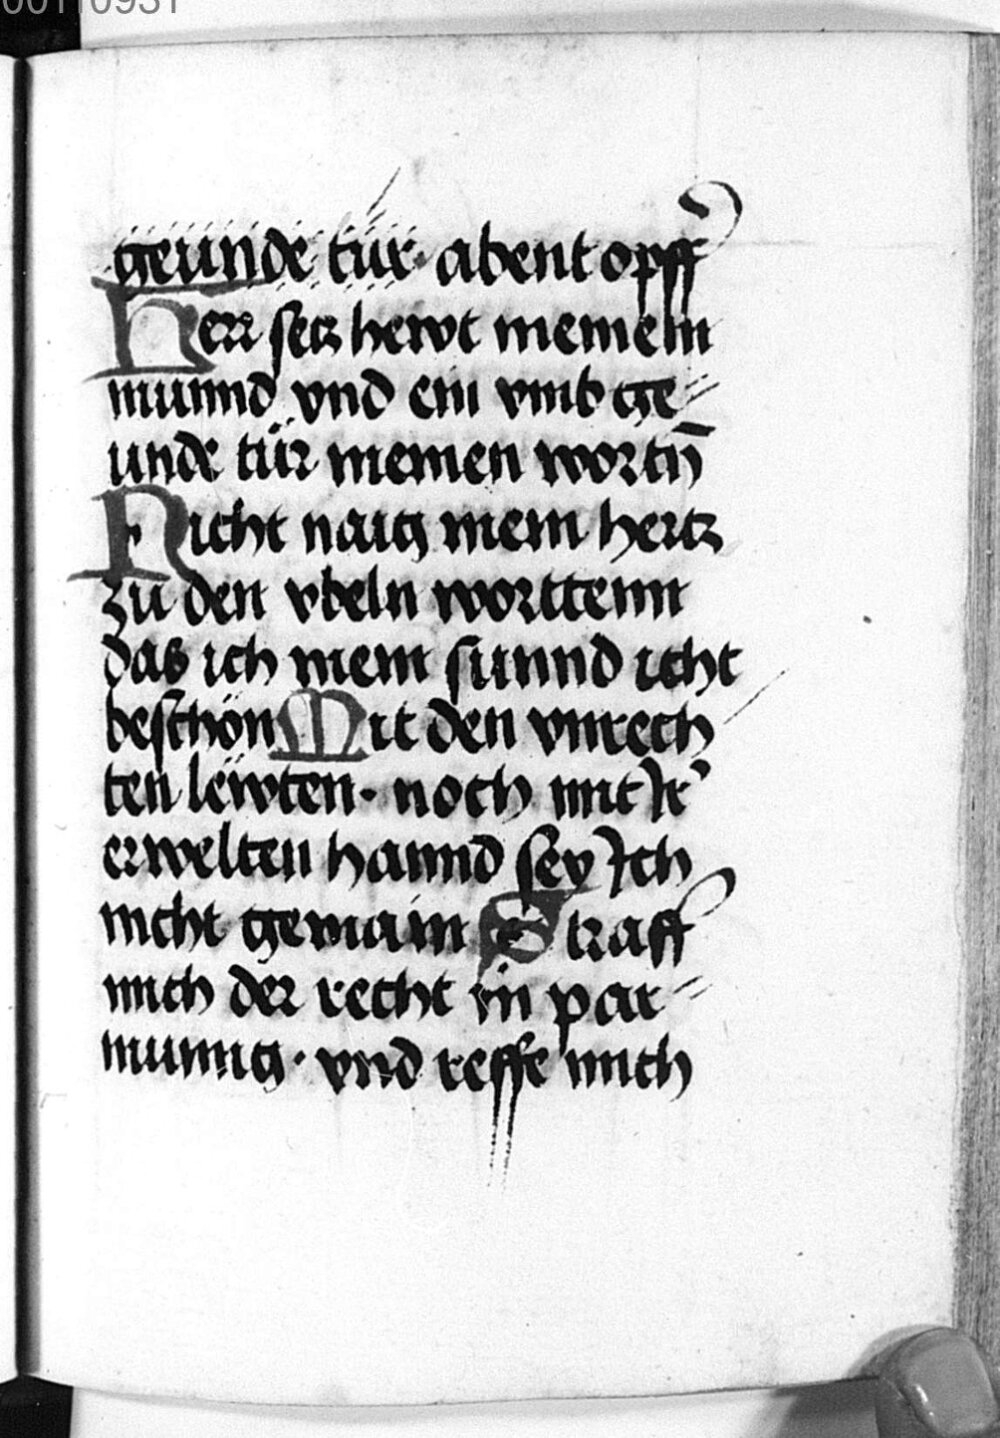 00110931
geunde tür· abent opff̄
Herr setz hewt meinem
munnd vnd ein vmb ge⸗
unde tür meinen wortn̄
Nicht naig mein hertz
zu den vbeln worttenn
das ich mein sunnd icht
beschön Mit den vnrech
ten lëwten· noch mit Ir'
erwelten hannd sey Ich
nicht gemain Straff
mich der recht in par⸗
mung· vnd reffe mich